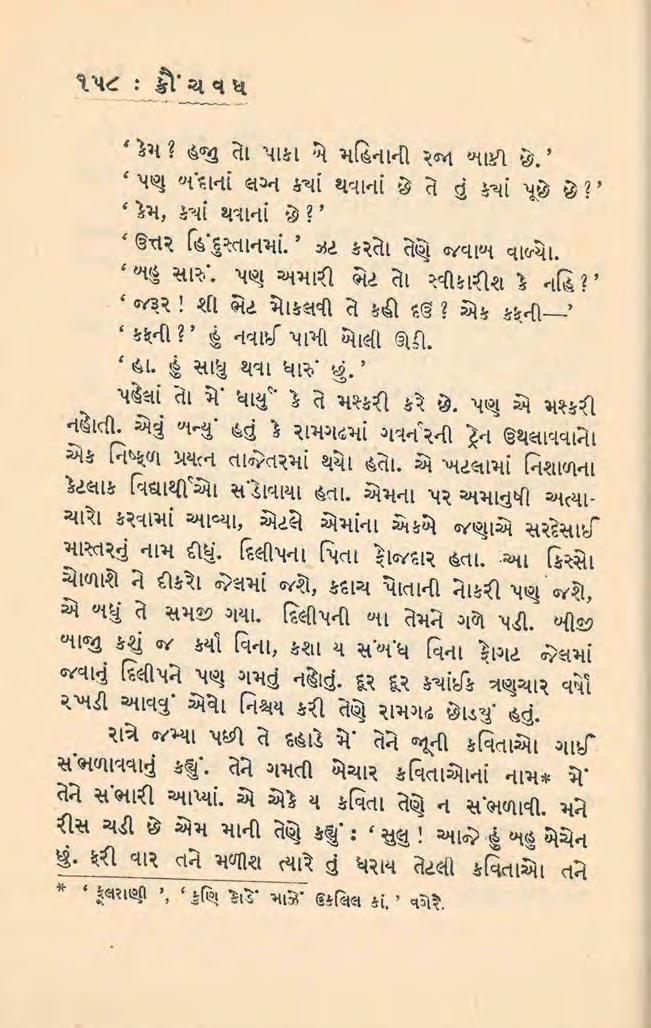 ૧૫૮ : ક્રૌંચવધ
‘કેમ ? હજી તો પાકા બે મહિનાની રજા બાકી છે.’
‘પણ બંદાનાં લગ્ન ક્યાં થવાનાં છે તે તું ક્યાં પૂછે છે ?’
‘કેમ, ક્યાં થવાનાં છે ?’
‘ઉત્તર હિંદુસ્તાનમાં.’ ઝટ કરતો તેણે જવાબ વાળ્યો.
‘બહુ સારું. પણ અમારી ભેટ તો સ્વીકારીશ કે નહિ ?’
‘જરૂર ! શી ભેટ મોકલવી તે કહી દઉં ? એક કફની—’
‘કફની ?’ હું નવાઈ પામી બોલી ઊઠી.
‘હા. હું સાધુ થવા ધારું છું.’
પહેલાં તો મેં ધાર્યું કે તે મશ્કરી કરે છે. પણ એ મશ્કરી
નહોતી. એવું બન્યું હતું કે રામગઢમાં ગવર્નરની ટ્રેન ઉથલાવવાનો
એક નિષ્ફળ પ્રયત્ન તાજેતરમાં થયો હતો. એ ખટલામાં નિશાળના
કેટલાક વિદ્યાર્થીઓ સંડોવાયા હતા. એમના પર અમાનુષી અત્યા-
ચારો કરવામાં આવ્યા, એટલે એમાંના એકબે જણાએ સરદેસાઈ
માસ્તરનું નામ દીધું. દિલીપના પિતા ફોજદાર હતા. આ કિસ્સો
ચોળાશે ને દીકરો જેલમાં જશે, કદાચ પોતાની નોકરી પણ જશે,
એ બધું તે સમજી ગયા. દિલીપની બા તેમને ગળે પડી. બીજી
બાજુ કશું જ કર્યા વિના, કશા ય સંબંધ વિના ફોગટ જેલમાં
જવાનું દિલીપને પણ ગમતું નહોતું. દૂર દૂર ક્યાંઈક ત્રણચાર વર્ષો
રખડી આવવું એવો નિશ્ચય કરી તેણે રામગઢ છોડ્યું હતું.
રાત્રે જમ્યા પછી તે દહાડે મેં તેને જૂની કવિતાઓ ગાઈ
સંભળાવવાનું કહ્યું. તેને ગમતી બેચાર કવિતાઓનાં નામ* મેં
તેને સંભારી આપ્યાં. એ એકે ય કવિતા તેણે ન સંભળાવી. મને
રીસ ચડી છે એમ માની તેણે કહ્યું : ‘સુલુ ! આજે હું બહુ બેચેન
છું. ફરી વાર તને મળીશ ત્યારે તું ધરાય તેટલી કવિતાઓ તને
* ‘ફૂલરાણી’, ‘કુણિ કોડેં માઝેં ઉકલિલ કાં.’ વગેરે.